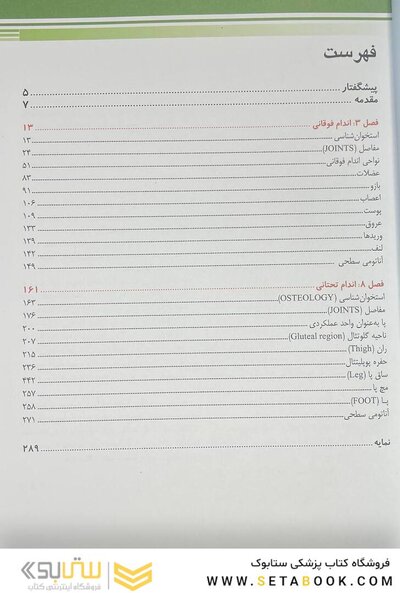 فهرست
پیشگفتار ۵
مقدمه ۷
فصل ۳: اندام فوقانی ۱۳
استخوان‌شناسی ۱۳
مفاصل (JOINTS) ۲۴
نواحی اندام فوقانی ۵۱
عضلات ۸۳
بازو ۹۱
اعصاب ۱۰۶
پوست ۱۰۹
عروق ۱۳۳
وریدها ۱۳۹
لنف ۱۴۲
آناتومی سطحی ۱۴۹
فصل ۸: اندام تحتانی ۱۶۱
استخوان‌شناسی (OSTEOLOGY) ۱۶۳
مفاصل (JOINTS) ۱۷۶
پا به‌عنوان واحد عملکردی ۲۰۰
ناحیه گلوتئال (Gluteal region) ۲۰۷
ران (Thigh) ۲۱۵
حفره پوپلیتئال ۲۳۶
ساق پا (Leg) ۴۴۲
مچ پا ۲۵۷
پا (FOOT) ۲۵۸
آناتومی سطحی ۲۷۱
نمایه ۲۸۹
فروشگاه کتاب پزشکی ستابوک
WWW.SETABOOK.COM
ستابوک
فروشگاه اینترنتی کتاب